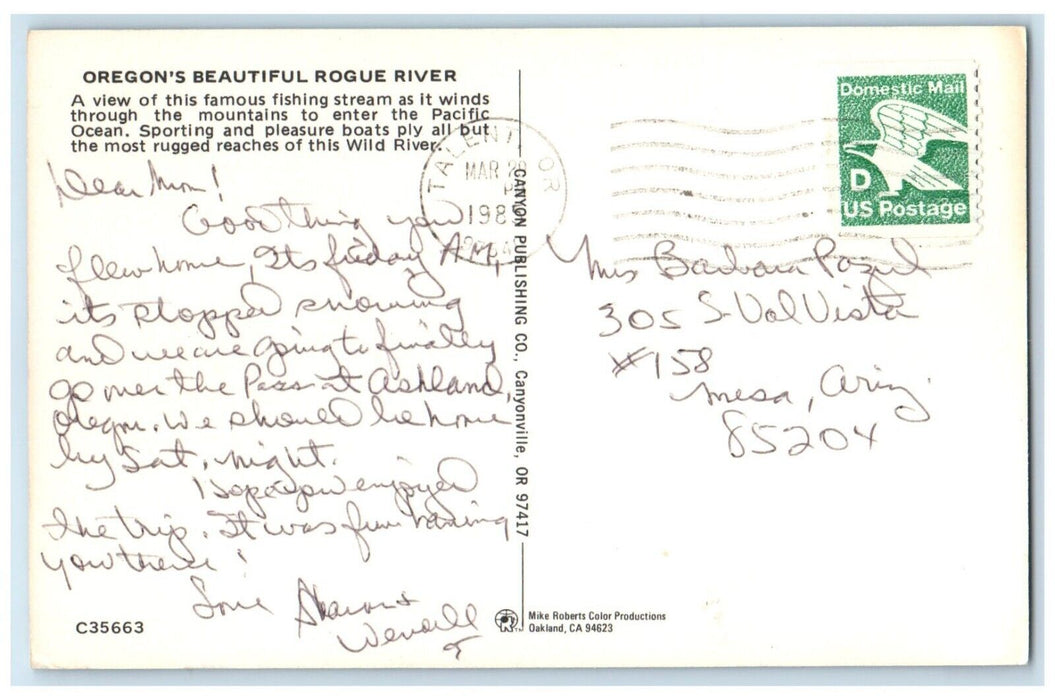 OREGON'S BEAUTIFUL ROGUE RIVER
A view of this famous fishing stream as it winds
through the mountains to enter the Pacific
Ocean. Sporting and pleasure boats ply all but
the most rugged reaches of this Wild River.
Dear Mom!
Good thing you
flew home, Its friday AM,
its stopped snowing
and we are going to finally
go over the Pass at Ashland,
Oregon. We should be home
by Sat. night.
Hope you enjoyed
the trip. It was fun having
you there!
Love Sharon &
Wendell
C35663
CANYON PUBLISHING CO., Canyonville, OR 97417
TALENT OR
MAR
1985
Domestic Mail
D
US Postage
Mrs Barbara
305 S. Val Vista
#158
Mesa, Ariz.
85204
Mike Roberts Color Productions
Oakland, CA 94623